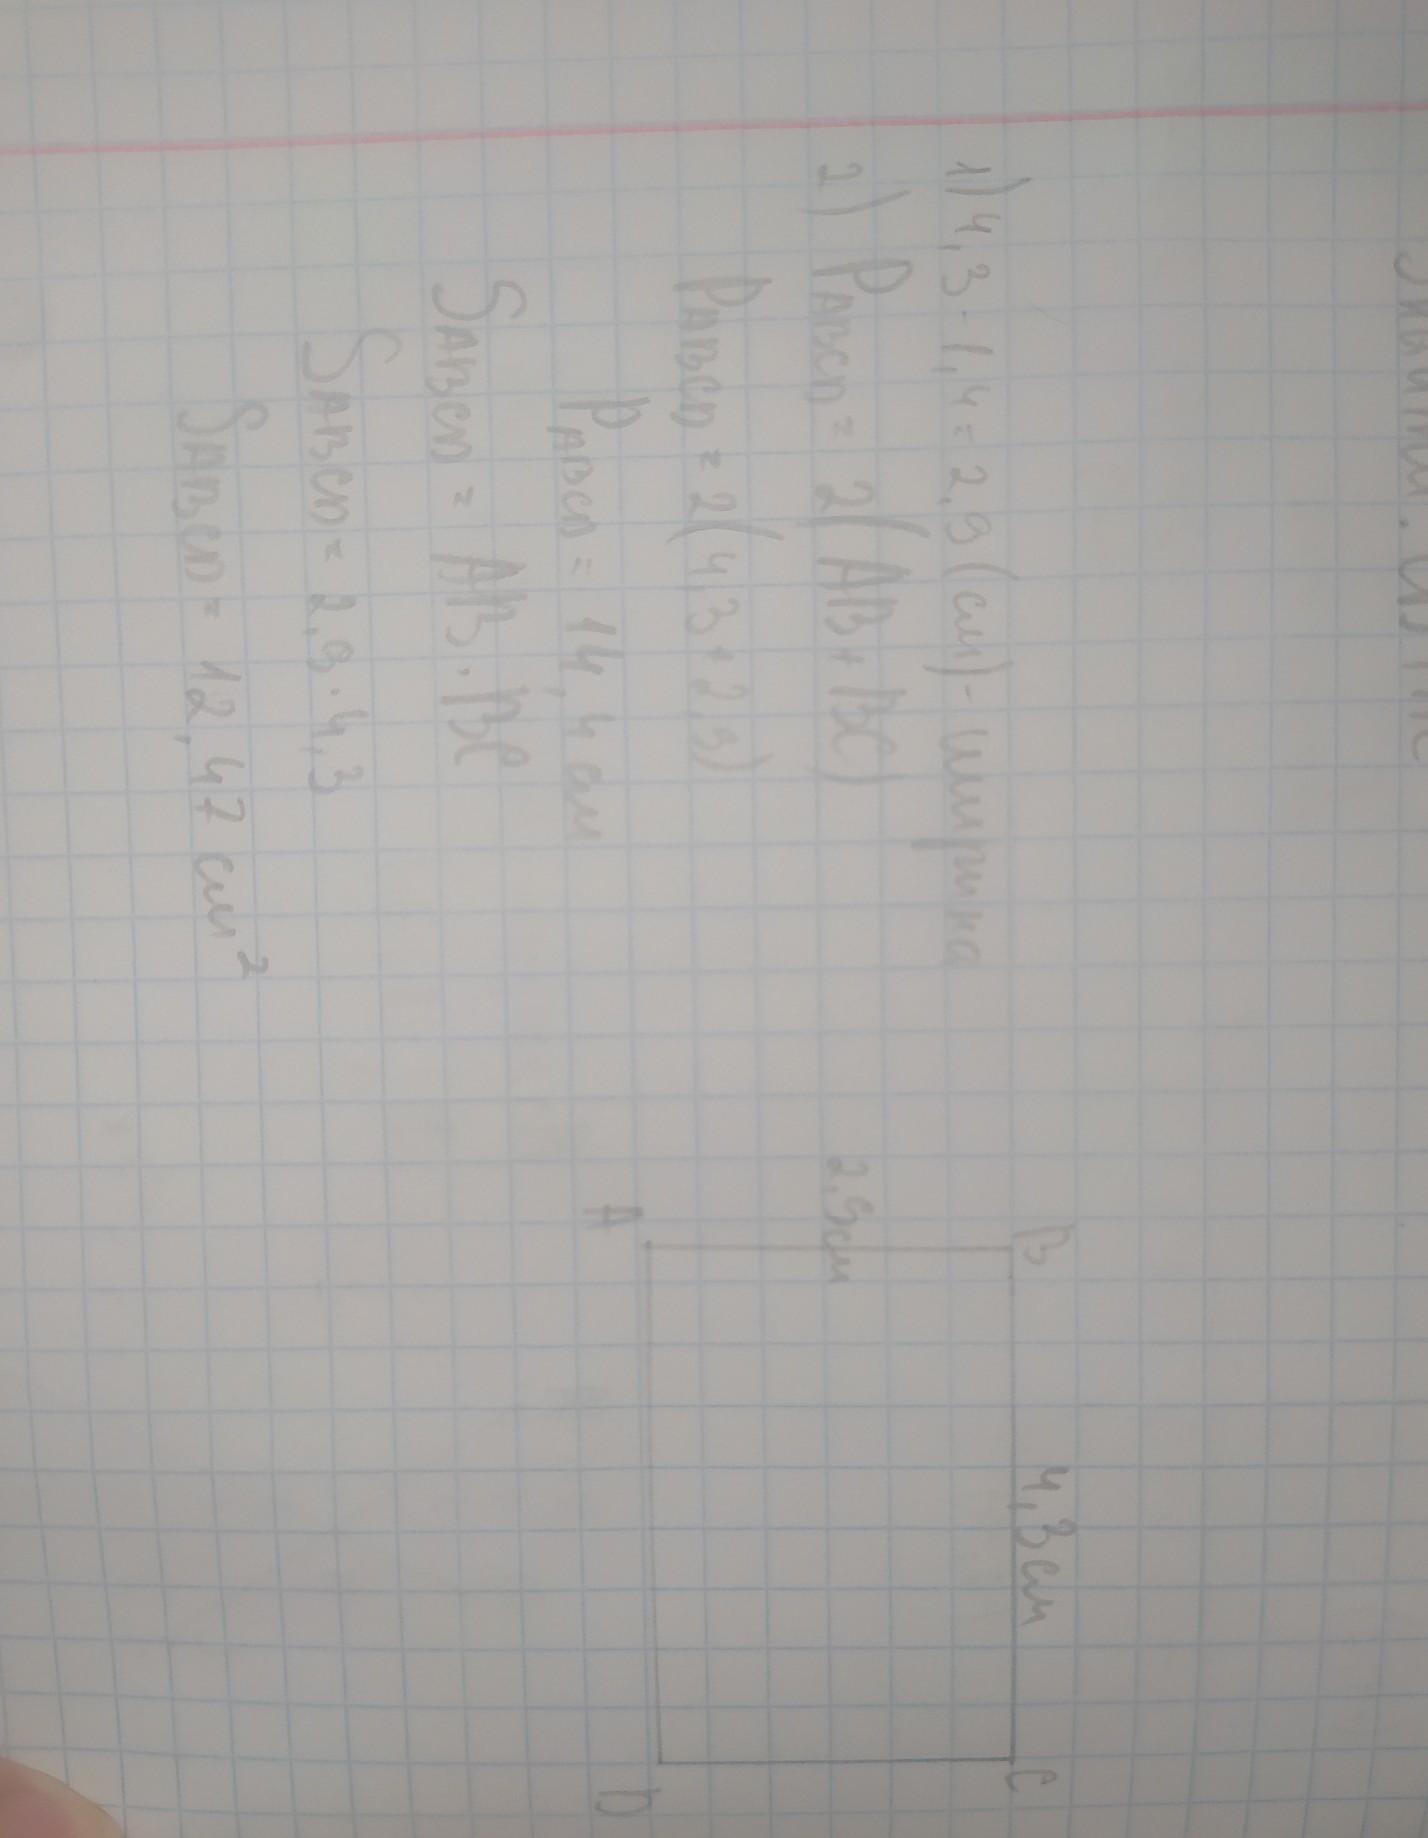 1) 4,3 - 1,4 = 2,9 (см) - ширина
2) PABCD = 2(AB + BC)
PABCD = 2(4,3 + 2,9)
PABCD = 14,4 см
SABCD = AB · BC
SABCD = 2,9 · 4,3
SABCD = 12,47 см²
B
4,3 см
C
2,9 см
A
D